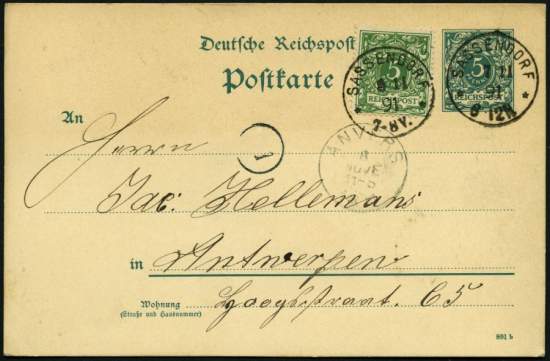 Deutsche Reichspost
Postkarte
5
REICHSPOST
5
REICHSPOST
SASSENDORF
11
91
* 7-8V. *
SASSENDORF
11
91
ANVERS
NOVE
An
Herrn
1
Jac. Hellemans
in Antwerpen
Wohnung
(Straße und Hausnummer)
65
891 b